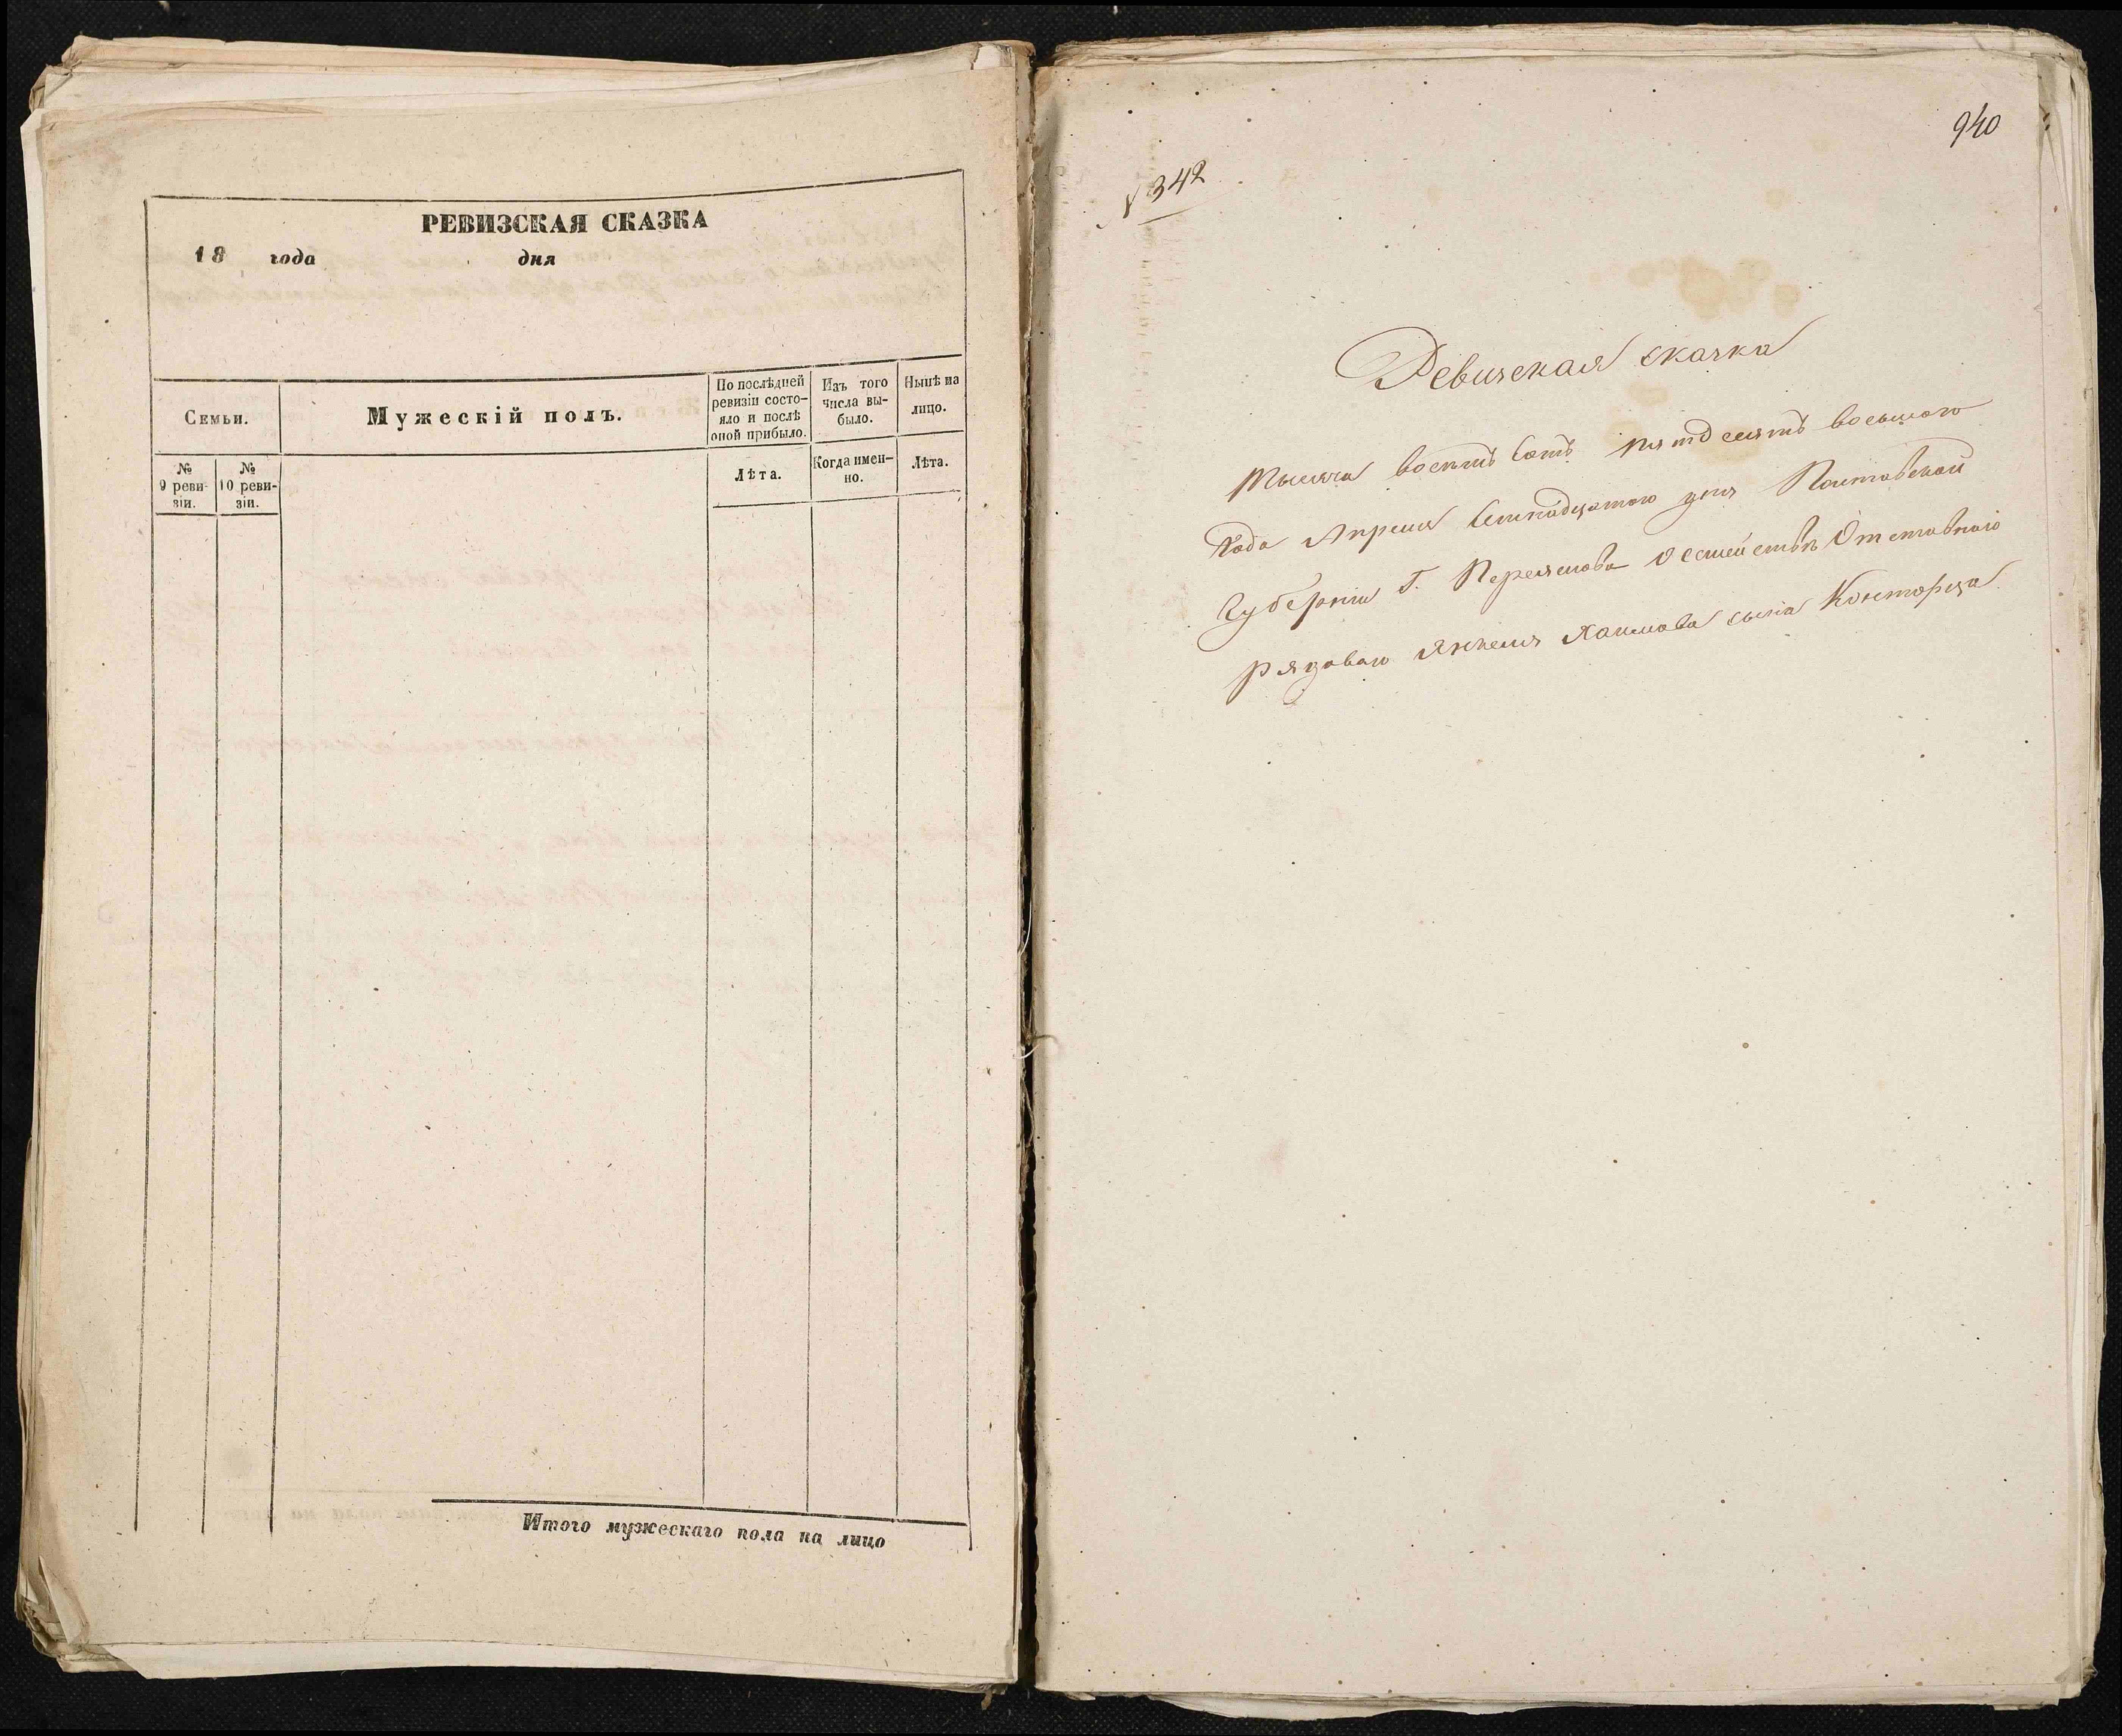 РЕВИЗСКАЯ СКАЗКА
18 года дня
Семьи.
Мужескій полъ.
По послѣдней ревизіи состояло и послѣ оной прибыло.
Изъ того числа выбыло.
Нынѣ на лицо.
№ 9 ревизіи.
№ 10 ревизіи.
Лѣта.
Когда именно.
Лѣта.
Итого мужескаго пола на лицо
940
342
Ревизская сказка
Тысяча восемь сотъ пятдесятъ восьмого
Года Апреля семнадцатого дня Полтавской
Губерніи Г. Переяслова О семействѣ Отставного
рядового Янкеля Хаимова сына Конторца